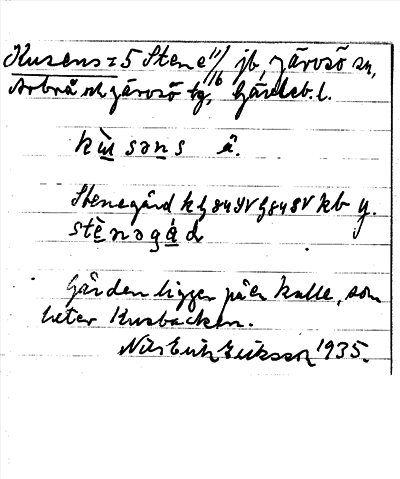 Kusens = 5 Stene 11/16 jb, Järvsö sn,
Arbrå och Järvsö tg, Gävleb. l.
kùsəns å.
Stenegård kb y.
stènəgǻd
Gården ligger på en kulle, som
heter Kusbacken.
Nils Erik Eriksson 1935.